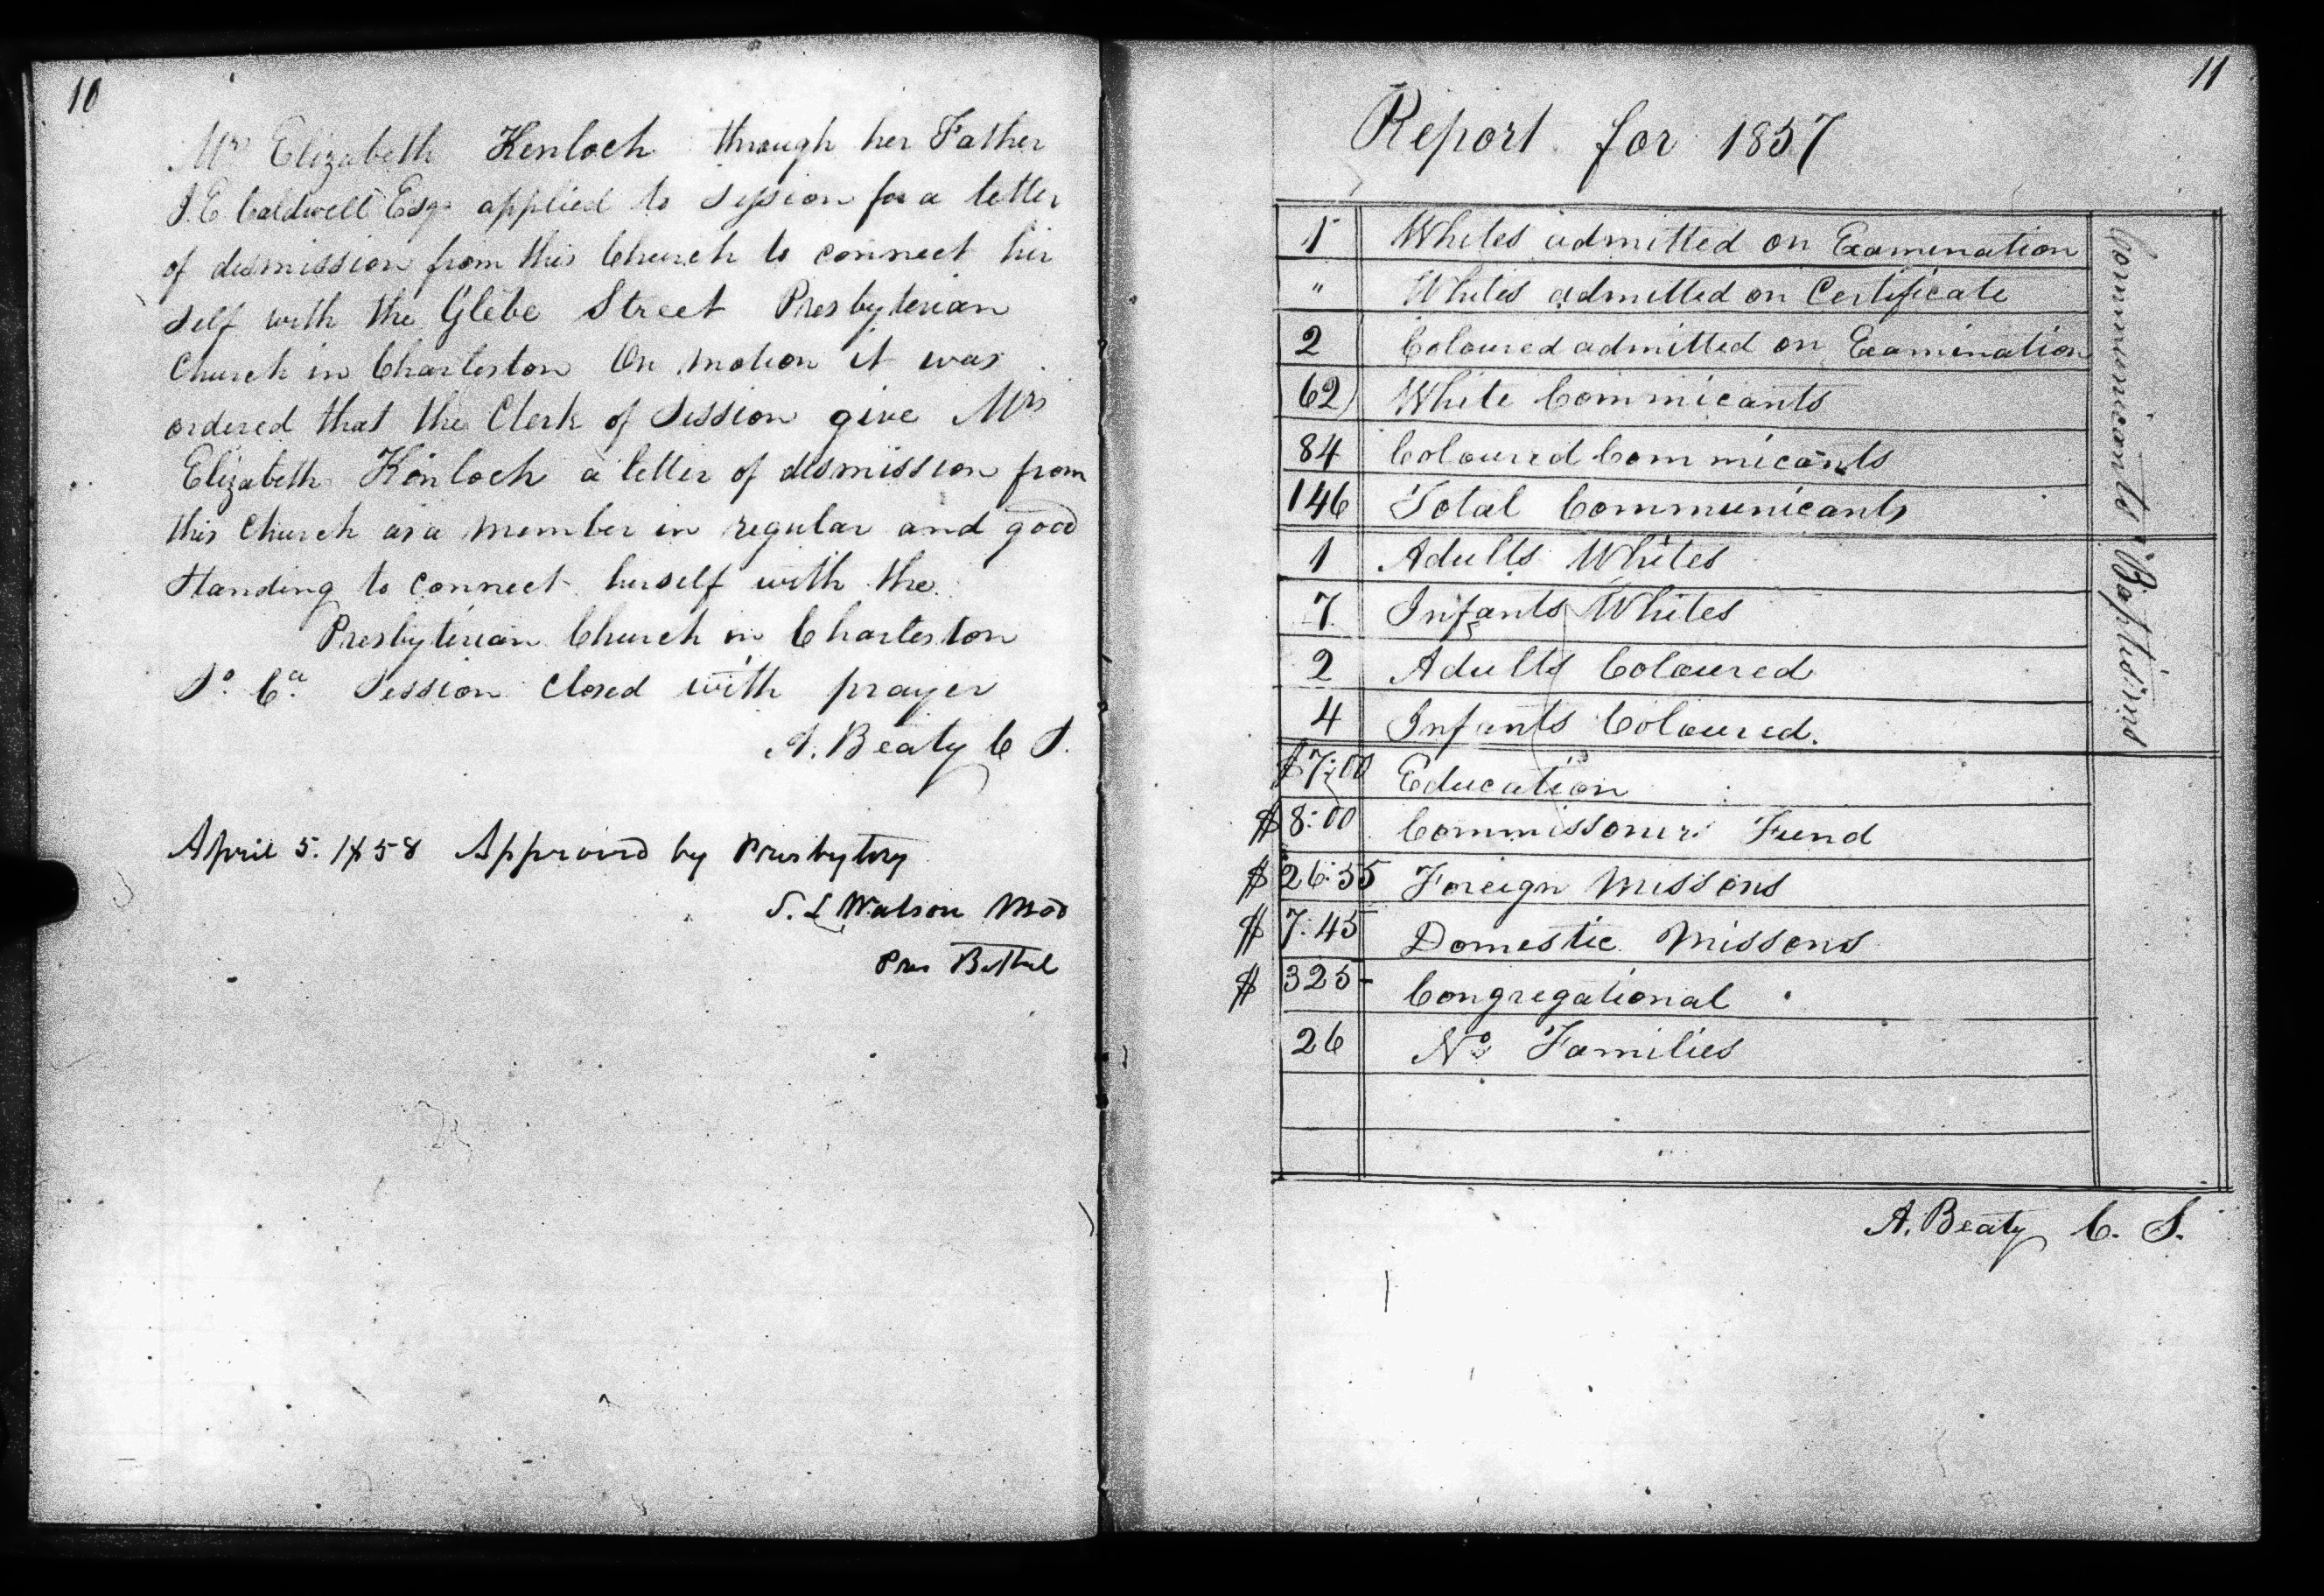 10
Mrs Elizabeth Kenloch through her Father
J. E. Caldwell Esqr applied to Session for a letter
of desmission from this Church to connect her
self with the Glebe Street Presbyterian
Church in Charleston On motion it was
ordered that the Clerk of Session give Mrs
Elizabeth Kinloch a letter of desmission from
this Church as a member in regular and good
standing to connect herself with the
Presbyterian Church in Charleston
So. Ca. Session Closed with prayer
A. Beaty C S.
April 5. 1858 Approved by Presbytery
S. L Watson Mod
Pres Bethel
11
Report for 1857
1 Whites admitted on Examenation
" Whites admitted on Certificate
2 Coloured admitted on Examination
62 White Commicants
84 Coloured Commicants
146 Total Communicants
Communicants
1 Adults Whites
7 Infants Whites
2 Adults Coloured
4 Infants Coloured.
Baptisims
$7:00 Education
$8:00 Commissoners Fund
$26:55 Foreign Missons
$7.45 Domestic Missons
$325- Congregational
26 No Families
A. Beaty C. S.